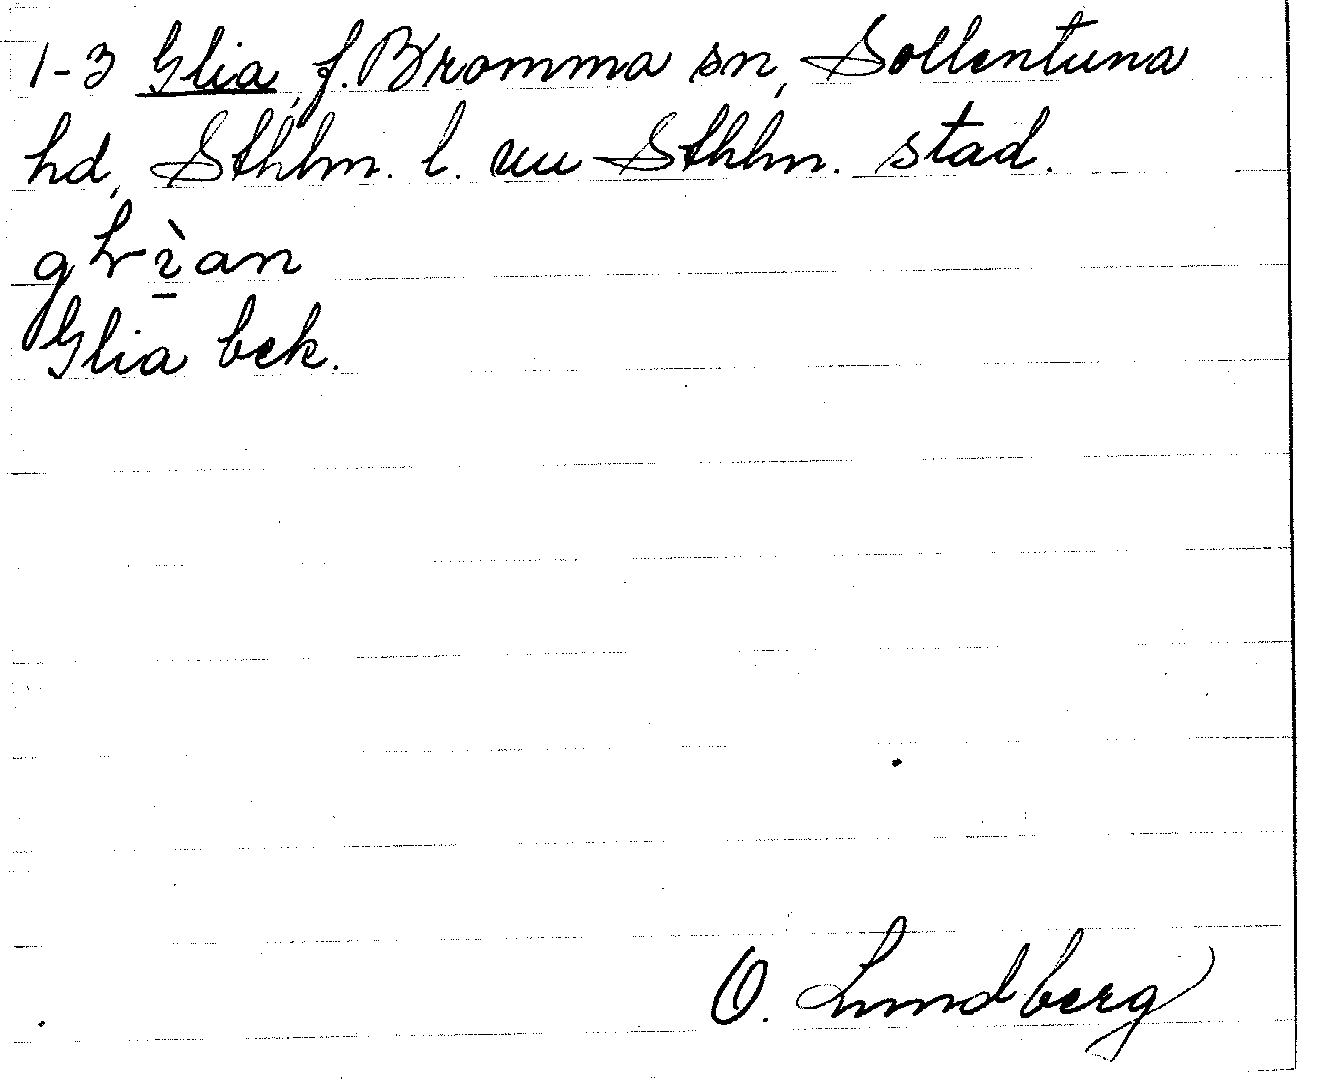 1-3 Glia, f. Bromma sn, Sollentuna
hd, Sthlm. l. nu Sthlm. stad.
Glia bek.
O. Lundberg